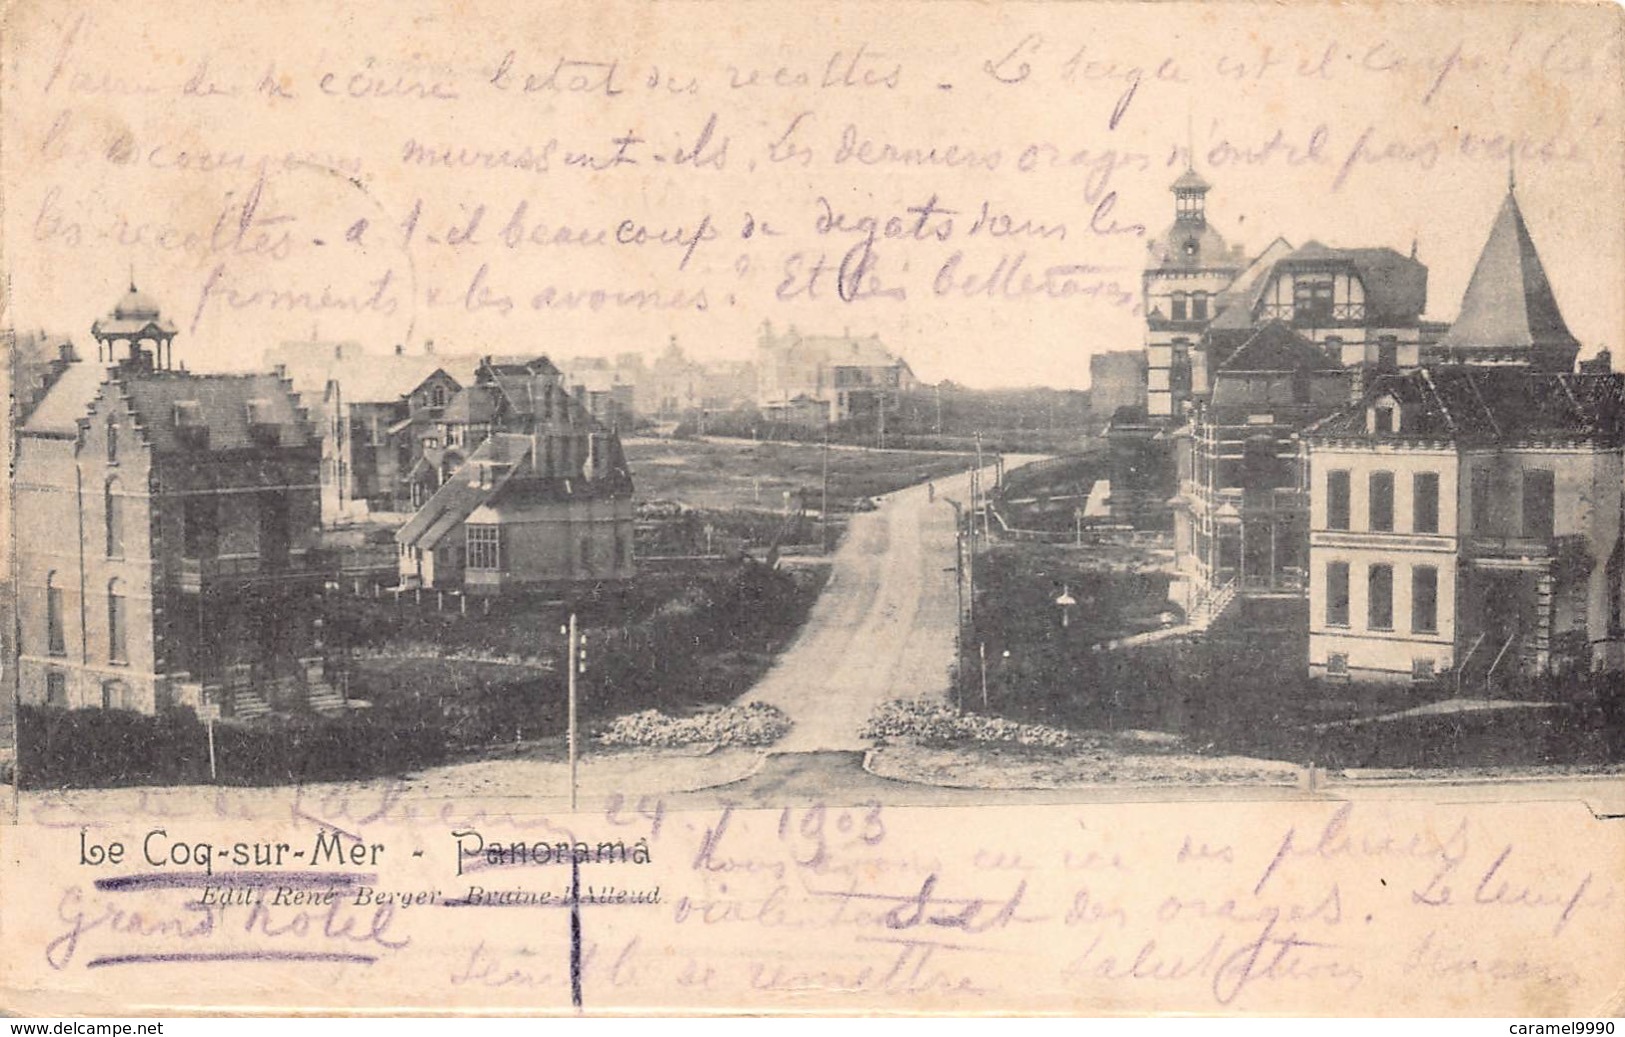 de me l'etat des recoltes - Le seigle est il coupé! Les
les murissent-ils. Les derniers orages n'ont il pas versé
les recoltes - a t-il beaucoup de degats dans les
froments & les avoines? Et les betteraves,
24 1903
Le Coq-sur-Mer - Panorama
Edit. René Berger. Braine-l'Alleud.
Grand hotel
Nous avons eu ici des pluies
violentes et des orages. Le temps
semble se remettre Salutations
www.delcampe.net
caramel9990